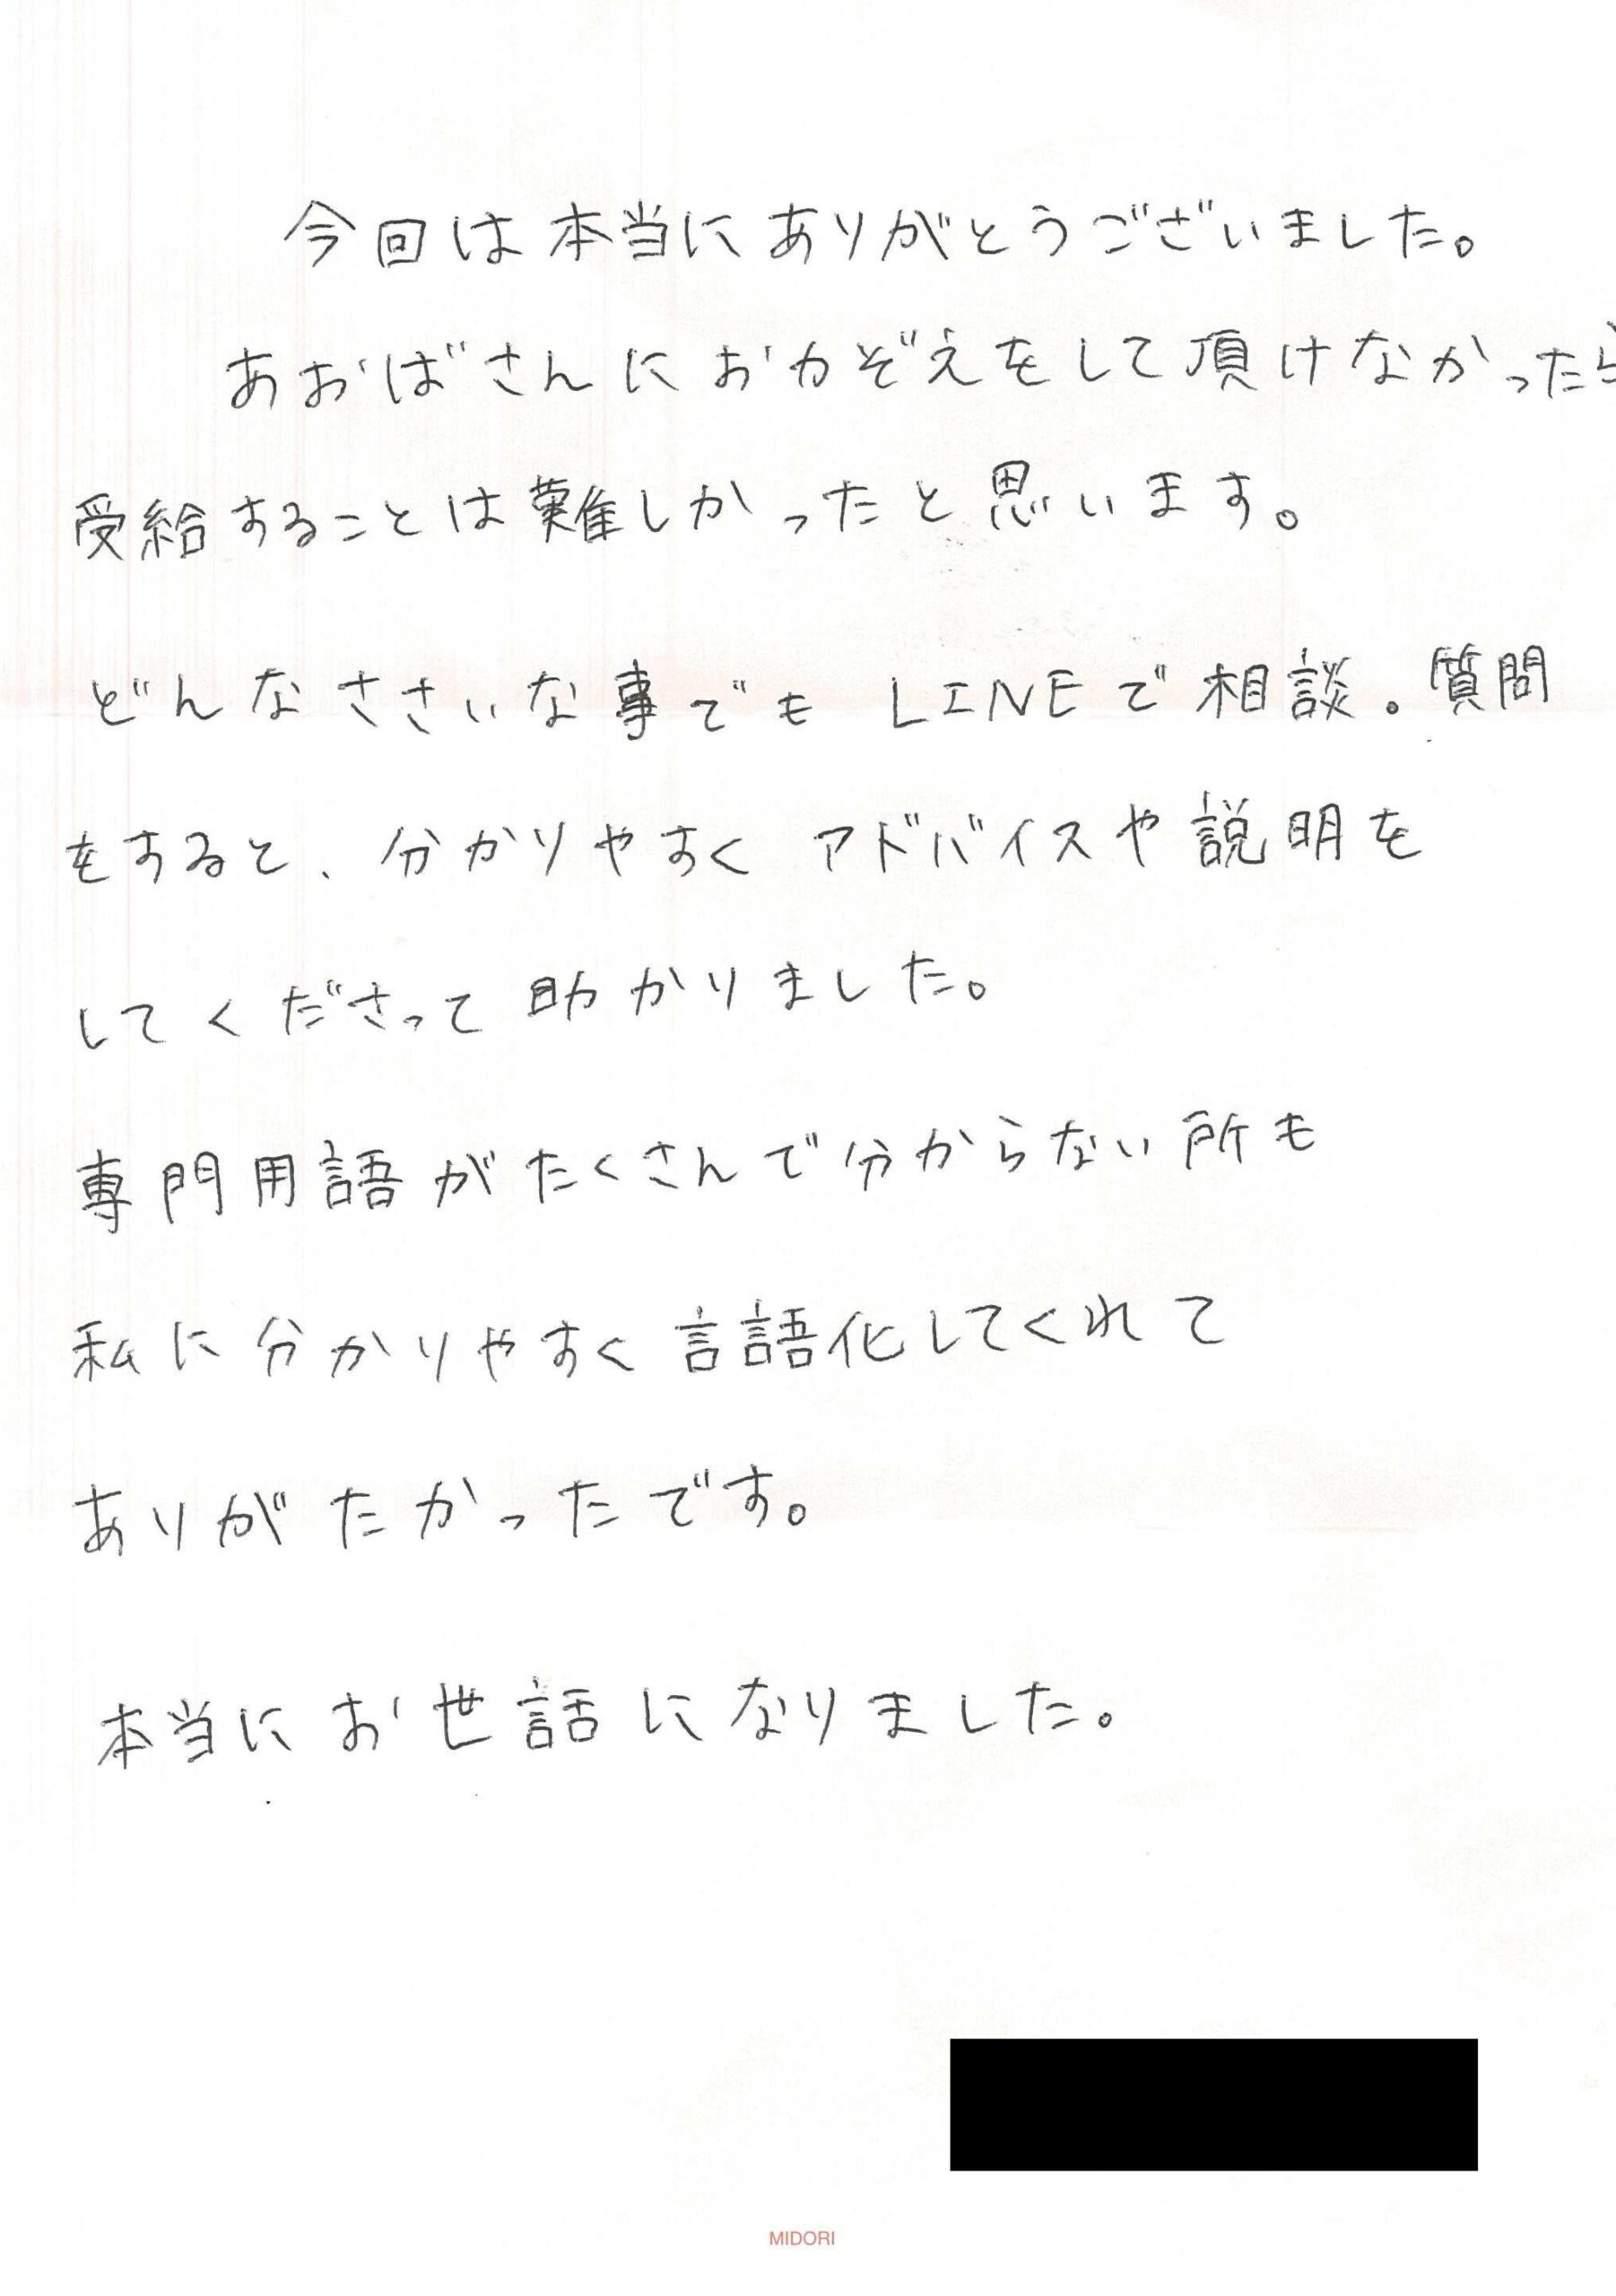 今回は本当にありがとうございました。
あおばさんにおカぞえをして頂けなかったら
受給することは難しかったと思います。
どんなささいな事でも LINEで相談。質問
をすると、分かりやすく アドバイスや説明を
してくださって助かりました。
専門用語がたくさんで分からない所も
私に分かりやすく言語化してくれて
ありがたかったです。
本当にお世話になりました。
MIDORI